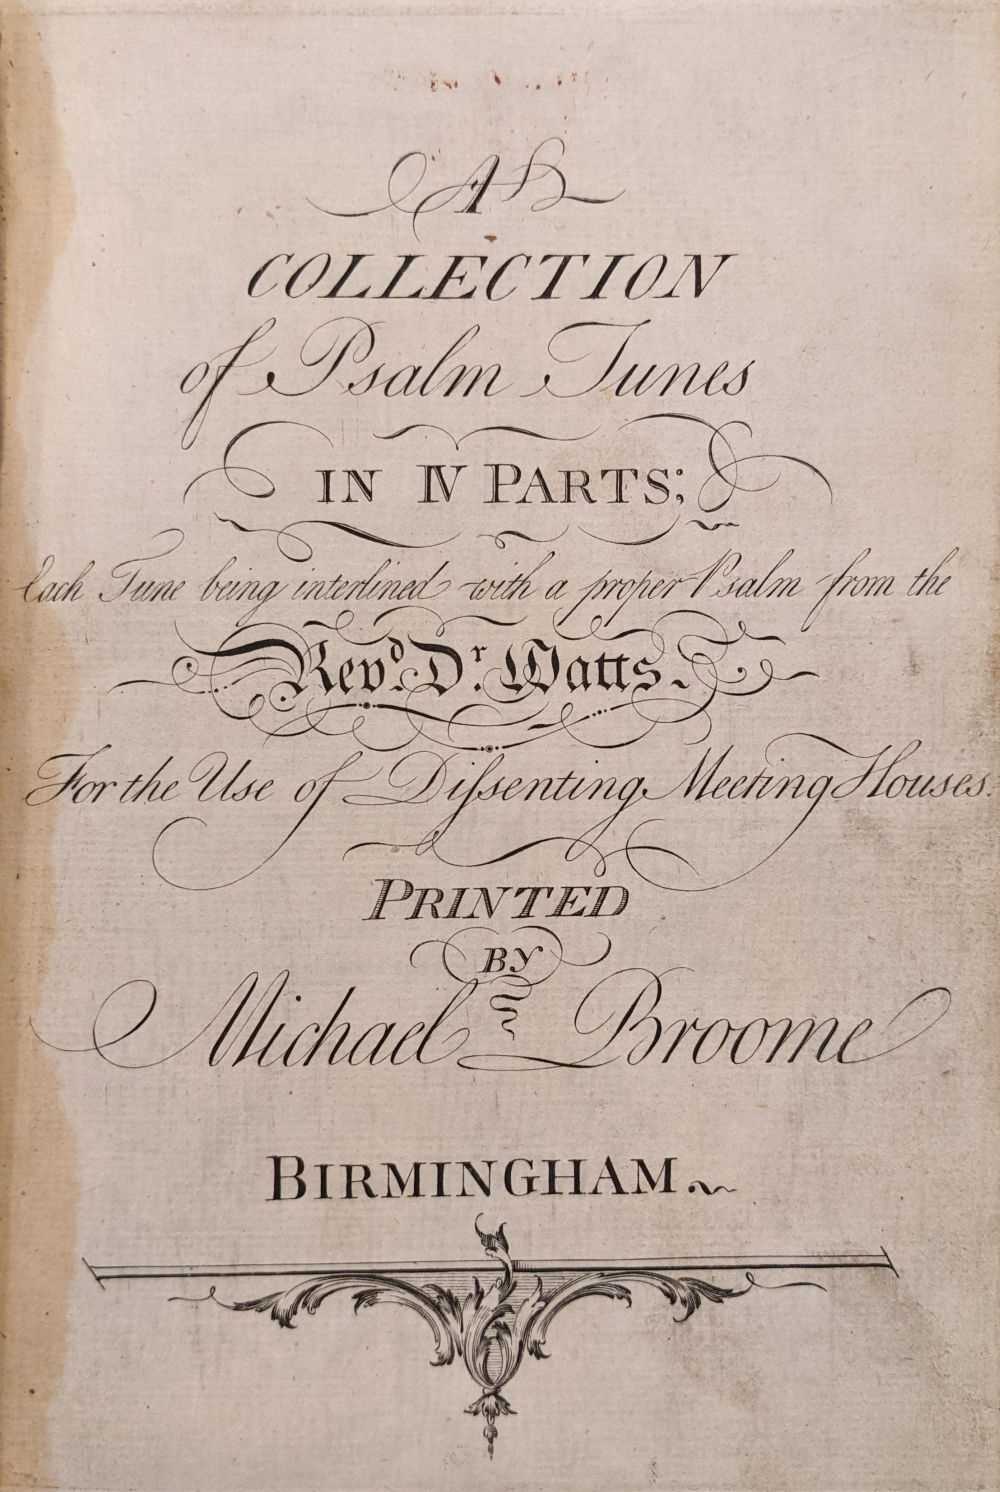 A
COLLECTION
of Psalm Tunes
IN IV PARTS;
Each Tune being interlined with a proper Psalm from the
Revd. Dr. Watts.
For the Use of Diſsenting Meeting Houses.
PRINTED
BY
Michael Broome
BIRMINGHAM